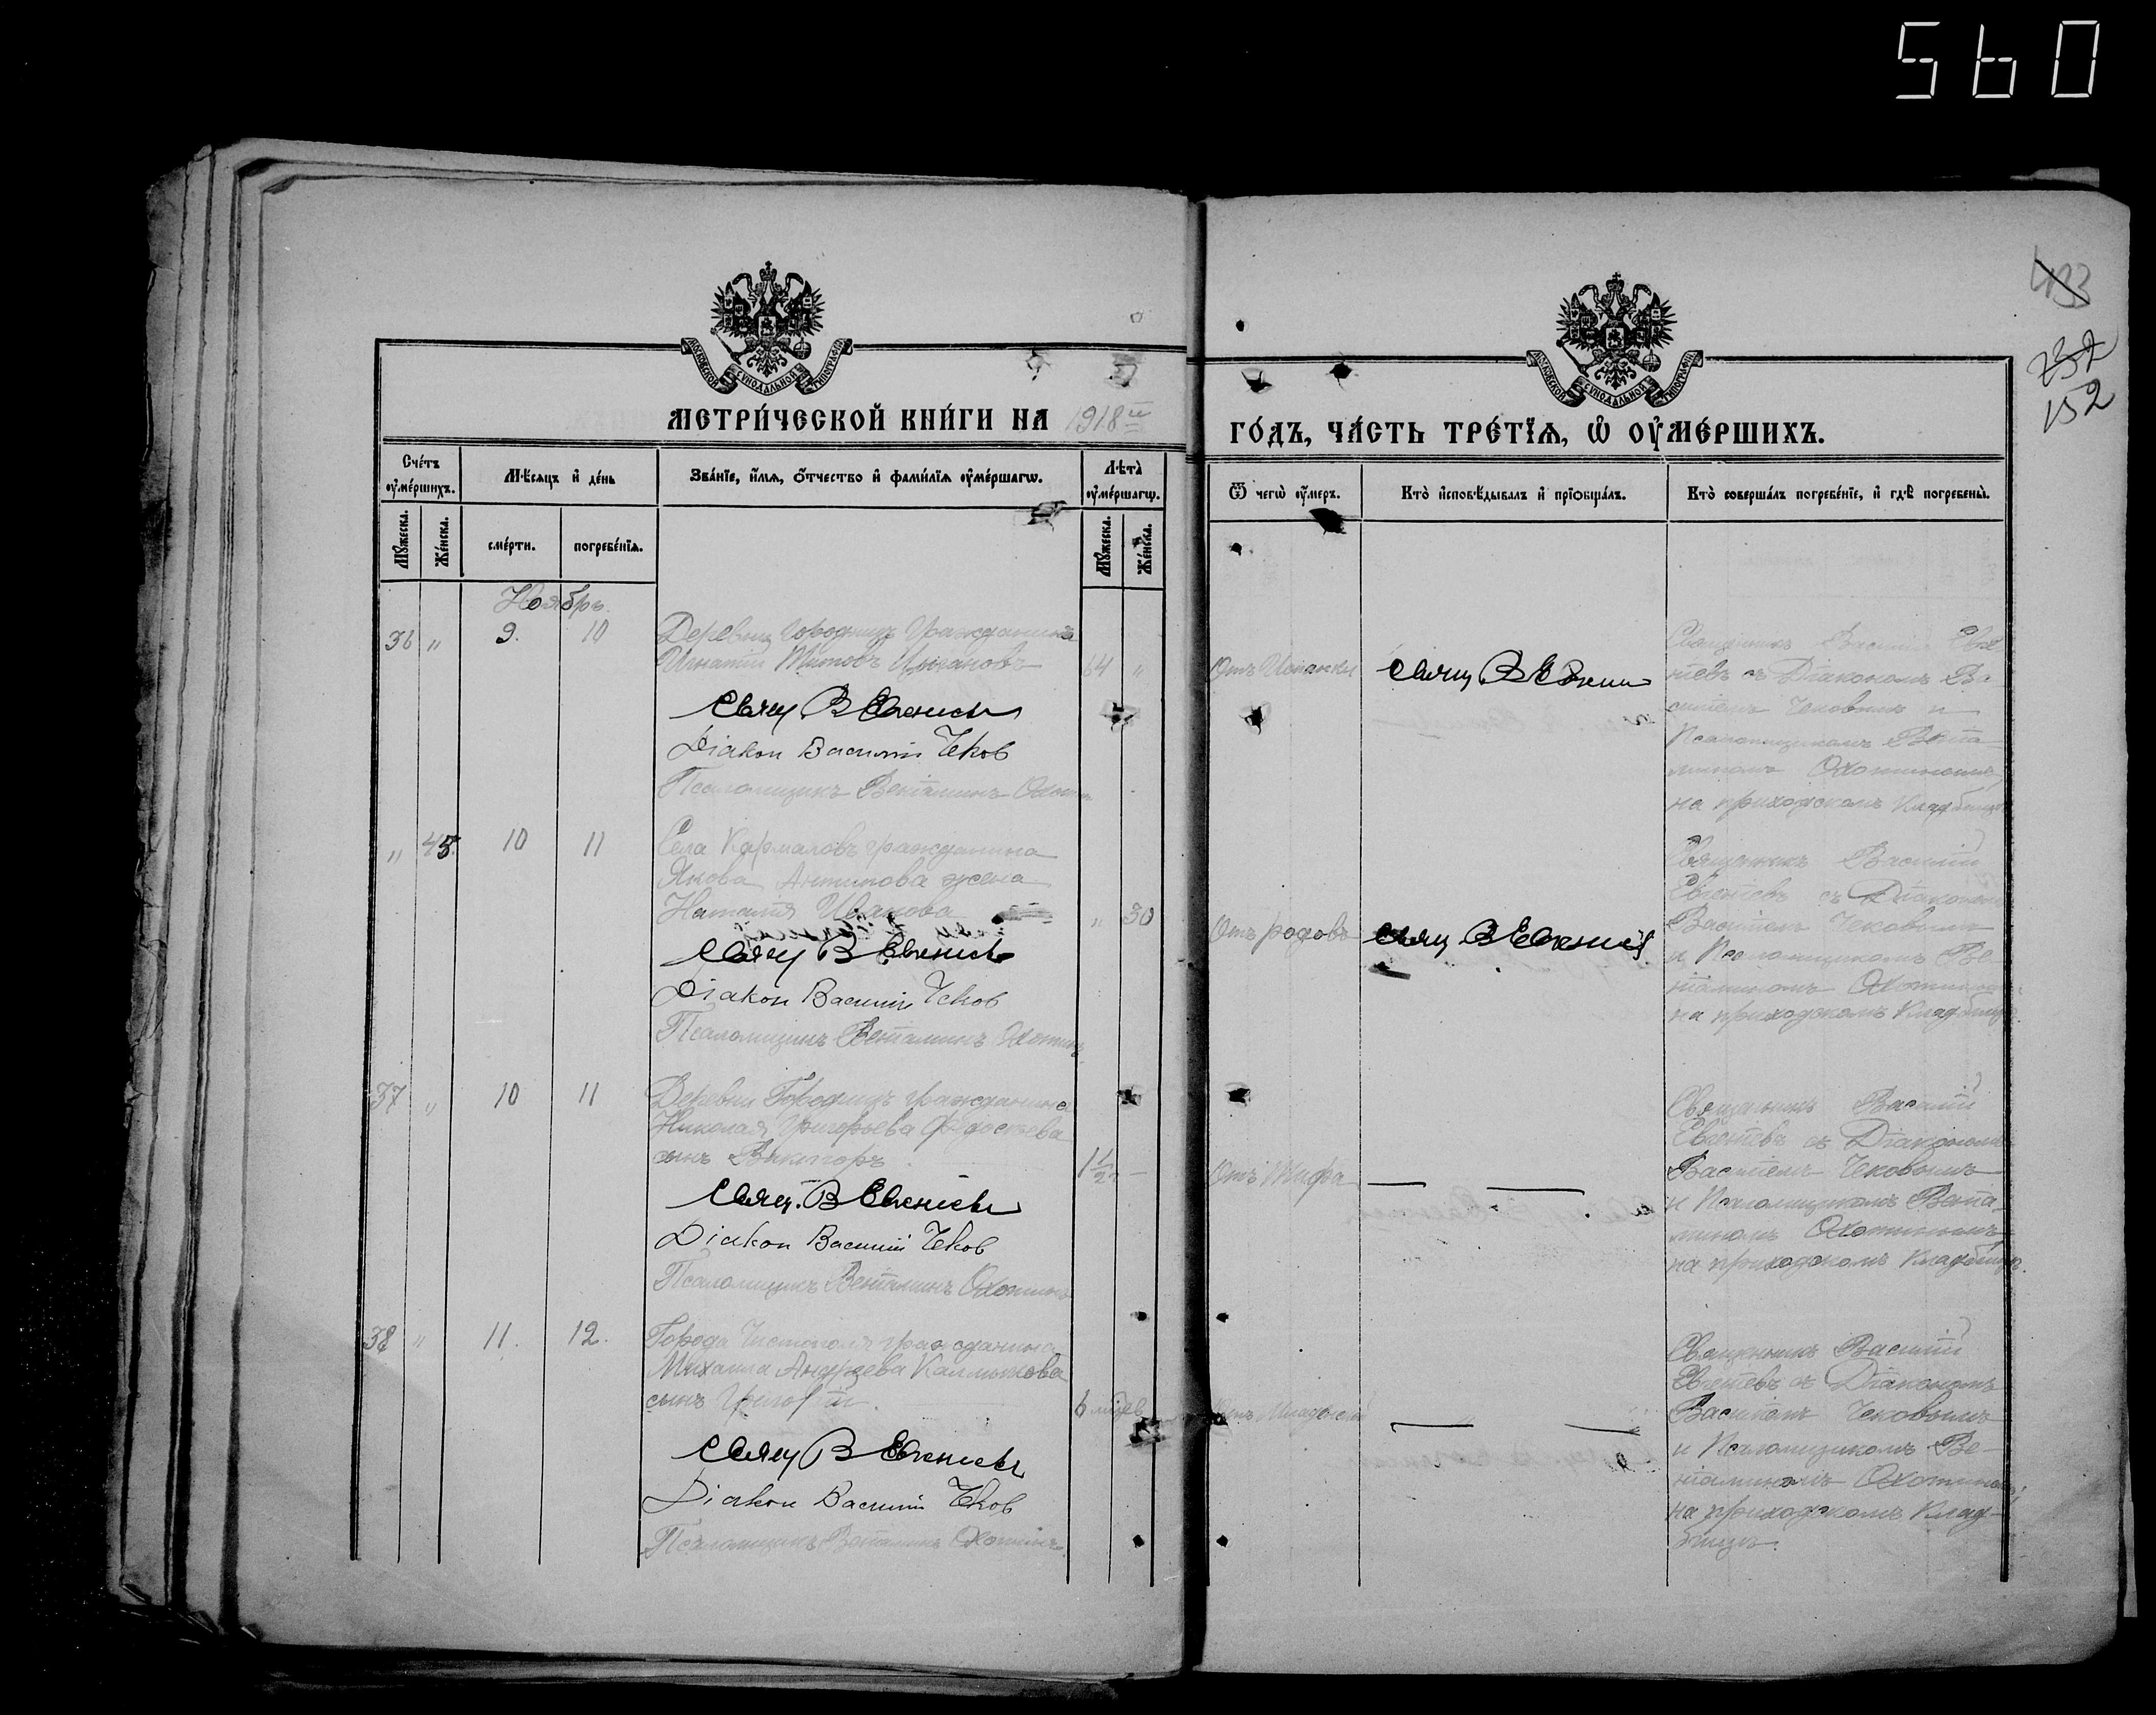 560
433
232
152
МОСКОВСКОЙ СѴНОДАЛЬНОЙ ТИПОГРАФІИ
МОСКОВСКОЙ СѴНОДАЛЬНОЙ ТИПОГРАФІИ
МЕТРИ́ЧЕСКОЙ КНИ́ГИ НА 1918й
ГО́ДЪ, ЧА́СТЬ ТРЕ́ТІѦ, Ѿ ОУ҆МЕ́РШИХЪ.
Сче́тъ оу҆ме́ршихъ.
Мꙋжеска.
Же́нска.
Мѣ́сѧцъ и҆ де́нь
сме́рти.
погребе́нїѧ.
Зва́нїе, и҆́мѧ, ѻ҆́тчество и҆ фами́лїѧ оу҆ме́ршагѡ.
Лѣ̀та оу҆ме́ршагѡ.
Мꙋжеска.
Же́нска.
Ѿ чегѡ̀ оу҆́меръ.
Кто̀ и҆сповѣ́дывалъ и҆ прїѡбща́лъ.
Кто̀ соверша́лъ погребе́нїе, и҆ гдѣ̀ погребены̀.
Ноябрь.
36 " 9. 10
Деревни Городищъ Гражданинъ
Игнатій Титовъ
64 "
Свящ В Евгеніевъ
Діакон Василій Чеков
Псаломщикъ Веніаминъ Охотин
Свящ В Евгеніев
Священникъ Василій Евге
ніевъ съ Діакономъ Ва
силіемъ Чековымъ и
Псаломщикомъ Веніа
миномъ Охотинымъ
на приходскомъ Кладбищѣ
" 45. 10 11
Села Кармаловъ гражданина
Якова Антипова жена
Наталія Иванова
" 30
Отъ родовъ
Свящ В Евгеніевъ
Діакон Василій Чеков
Псаломщикъ Веніаминъ Охотинъ
Свящ В Евгеніев
Священникъ Василій
Евгеніевъ съ Діакономъ
Василіемъ Чековымъ
и Псаломщикомъ Ве
ніаминомъ Охотинымъ
на приходскомъ Кладбищѣ
37 " 10 11
Деревни Городищъ гражданина
Николая Григорьева Федосѣева
сынъ Викторъ
1 1/2 —
Отъ Тифа
Свящ. В Евгеніевъ
Діакон Василій Чеков
Псаломщикъ Веніаминъ Охотинъ
Священникъ Василій
Евгеніевъ съ Діакономъ
Василіемъ Чековымъ
и Псаломщикомъ Веніа
миномъ Охотинымъ
на приходскомъ Кладбищѣ.
38 " 11. 12.
Города Чистополя гражданина
Михаила Андреева Калмыкова
сынъ Григорій.
6 мѣсяцев
Свящ В Евгеніевъ
Діакон Василій Чеков
Псаломщикъ Веніаминъ Охотинъ.
Священникъ Василій
Евгеніевъ съ Діакономъ
Василіемъ Чековымъ
и Псаломщикомъ Ве-
ніаминомъ Охотинымъ
на приходскомъ Клад-
бищѣ.